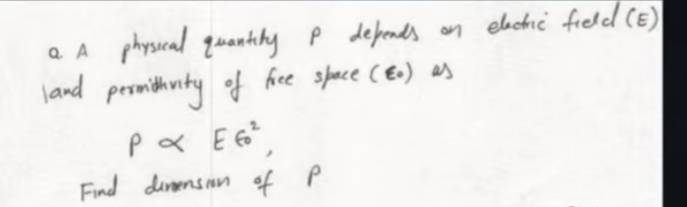 Q. A physical quantity P depends on electric field (E)
and permittivity of free space (ε₀) as
P ∝ E ε₀²,
Find dimension of P